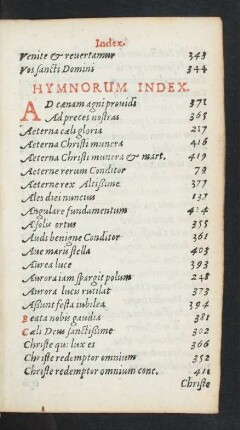 Index.
Venite & revertamur 343
Vos sancti Domini 344
HYMNORUM INDEX.
AD cænam agni providi 371
Ad preces nostras 365
Aeterna cæli gloria 217
Aeterna Christi munera 416
Aeterna Christi munera & mart. 419
Aeterne rerum Conditor 79
Aeterne rex Altissime 377
Ales diei nuncius 137
Angulare fundamentum 424
A solis ortus 355
Audi benigne Conditor 361
Ave maris stella 403
Aurea luce 393
Aurora iam spargit polum 248
Aurora lucis rutilat 373
Assunt festa iubilea 394
Beata nobis gaudia 381
Cæli Deus sanctissime 302
Christe qui lux es 366
Christe redemptor omnium 352
Christe redemptor omnium conc. 411
Christe